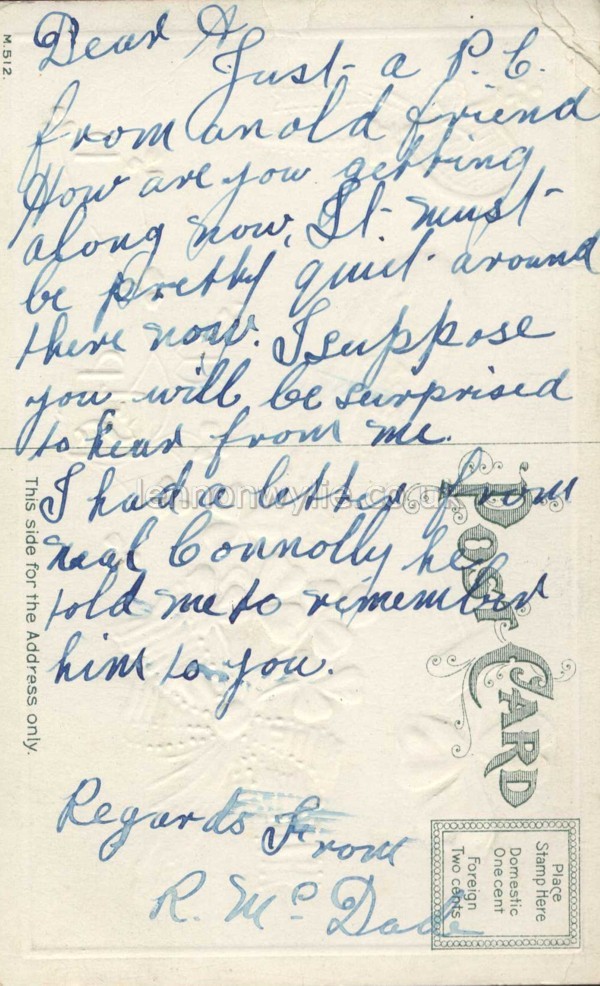 Dear A
Just a P.C.
from an old friend
How are you getting
along now, It must
be pretty quiet around
there now. I suppose
you will be surprised
to hear from me.
I had a letter from
neal Connolly he
told me to remember
him to you.
Regards From
R. Mc Dade
M.512.
This side for the Address only.
POST CARD
Place
Stamp Here
Domestic
One cent
Foreign
Two cents
lennonwylie.co.uk